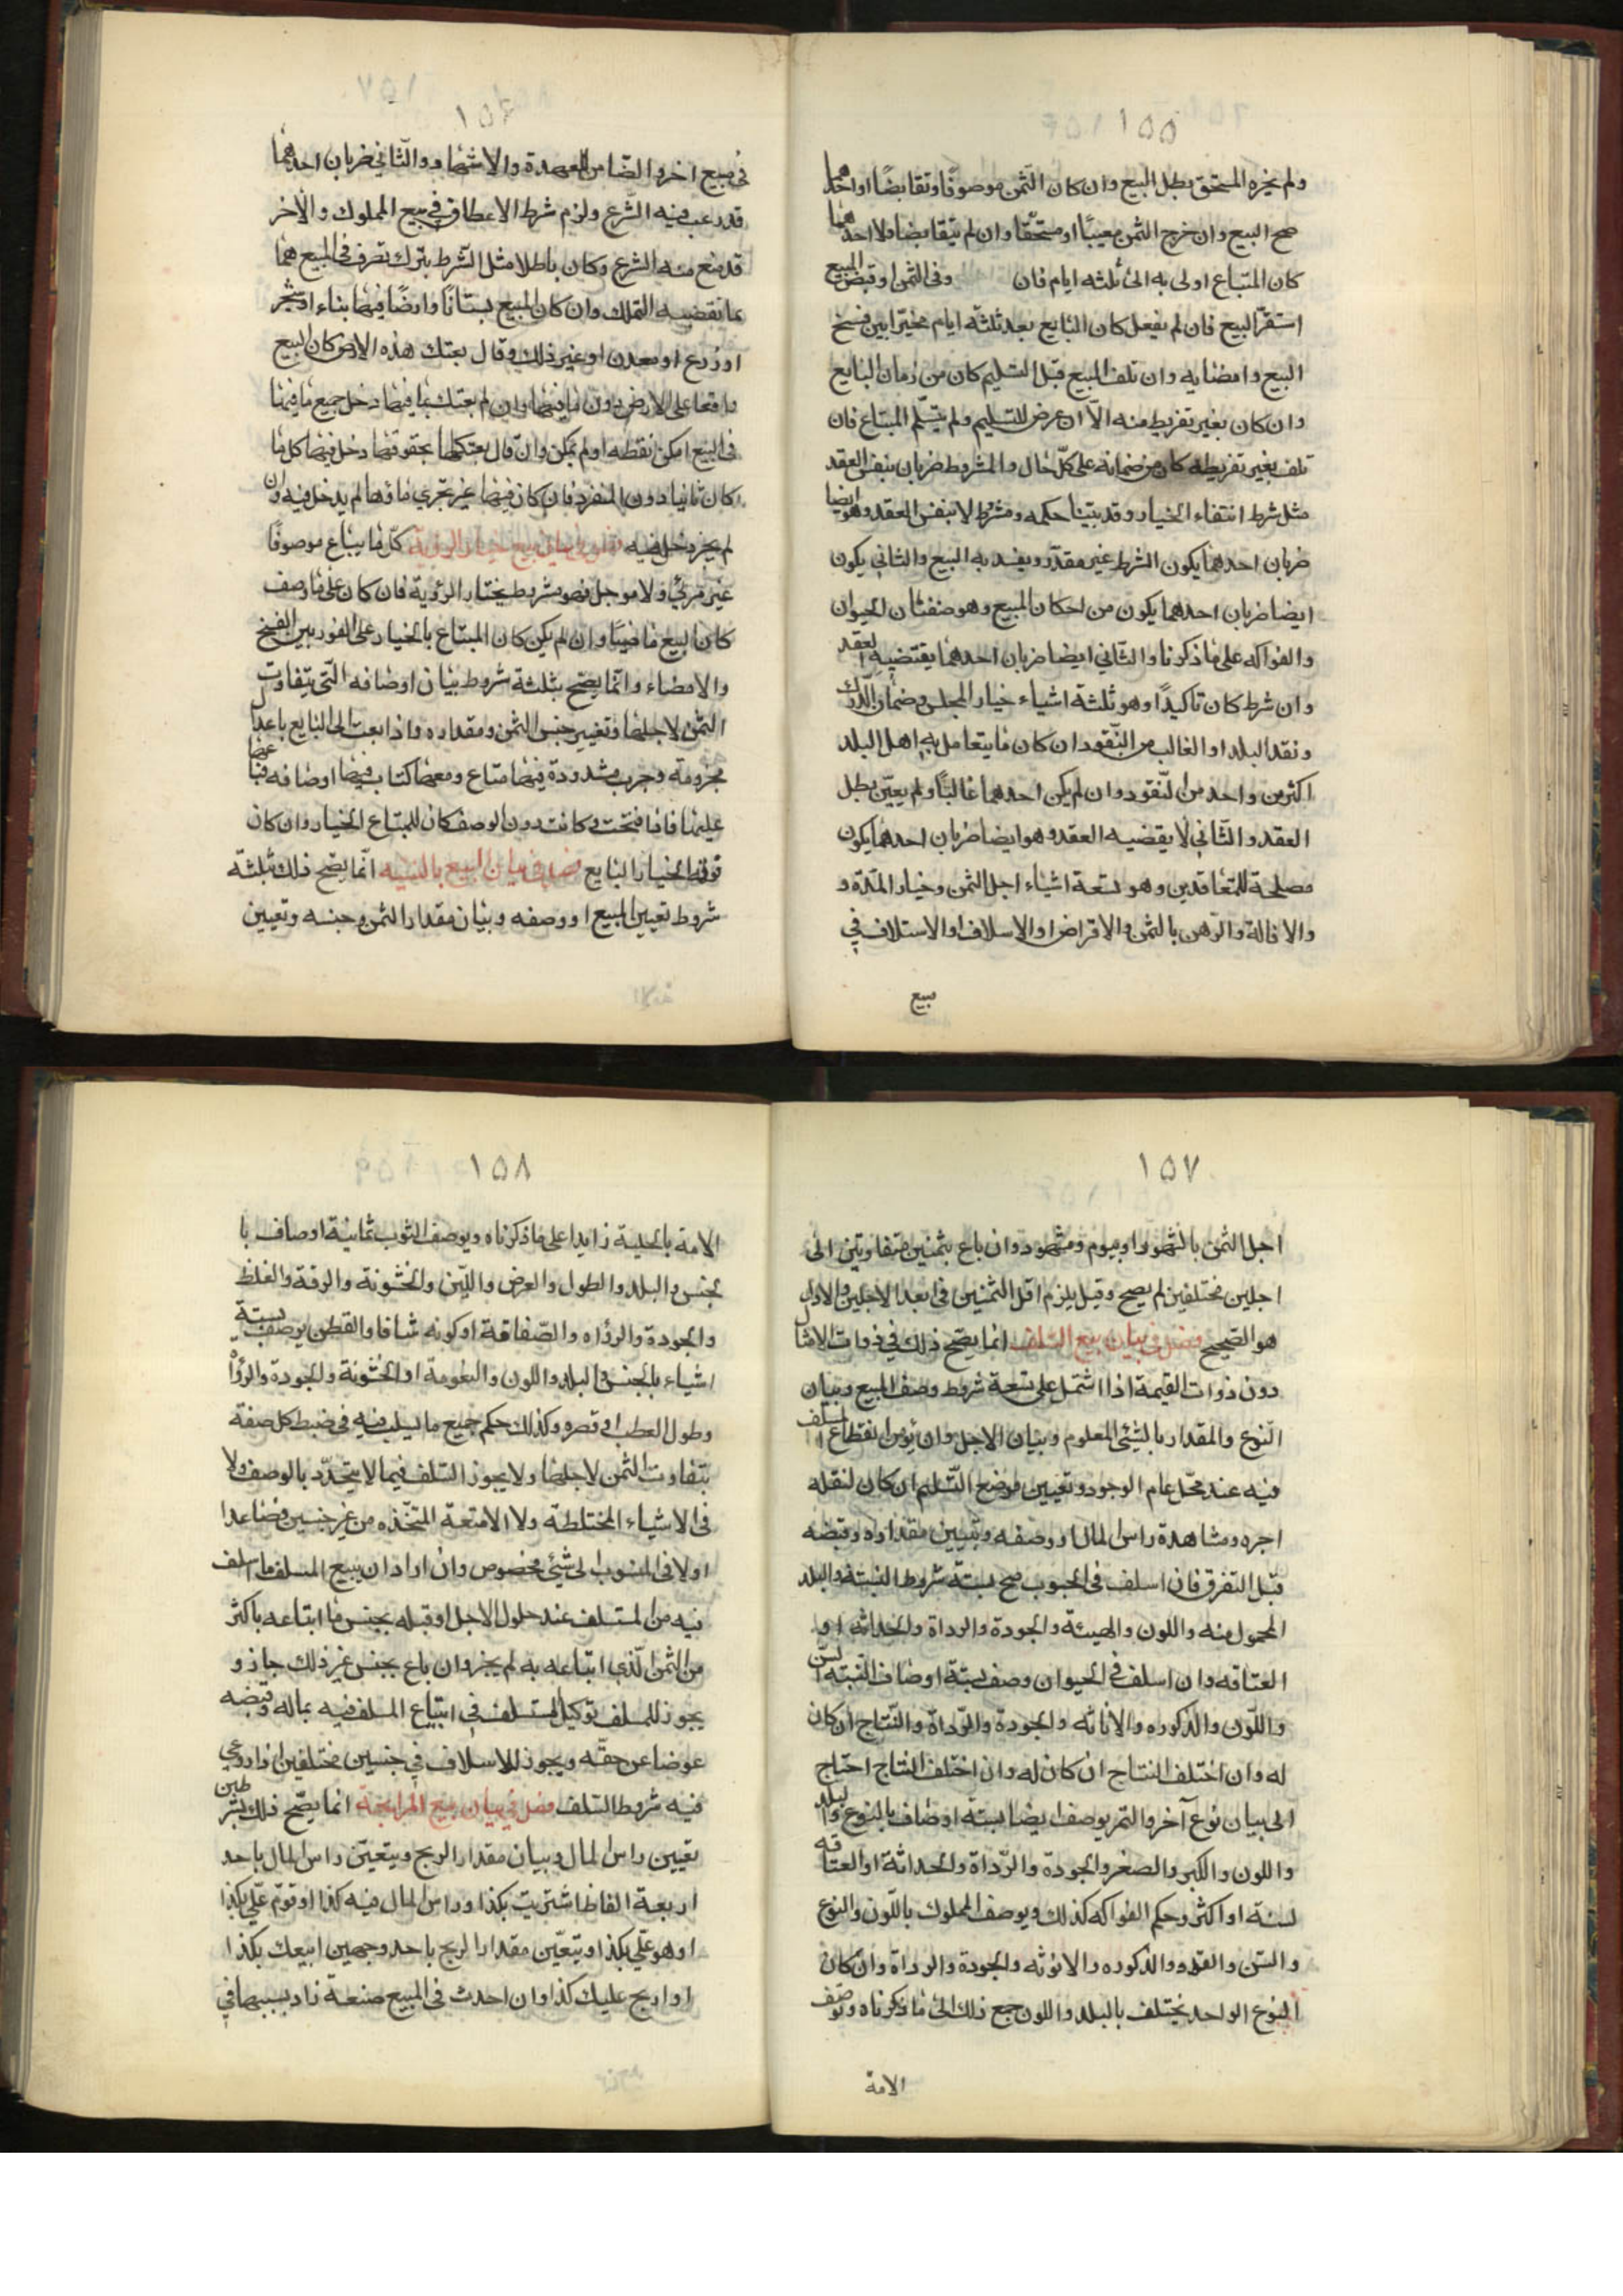 ١٥٥
ولم يجزه المستحق بطل البيع وان كان الثمن موصوفا وتقابضا او احدهما
صح البيع وان خرج الثمن معيبا او مستحقا وان لم يتقابضا ولا احدهما
كان المتباع اولى به الى ثلثه ايام فان وفى الثمن او قبض المبيع
استقر البيع فان لم يفعل كان البايع بعد ثلثه ايام مخيرا بين فسخ
البيع وامضايه وان تلف المبيع قبل التسليم كان من زمان البايع
وان كان بغير تفريط منه الا ان عرض للتسليم ولم يتسلم المبتاع فان
تلف بغير تفريطه كان من ضمانه على كل حال والمشروط ضربان بنفس العقد
مثل شرط انتفاء الخيار وقد بينا حكمه ومشرط لا بنفس العقد وهو ايضا
ضربان احدهما يكون الشرط غير مقدر ويفسد به البيع والثانى يكون
ايضا ضربان احدهما يكون من احكان المبيع وهو صنفان الحيوان
والفواكه على ما ذكرنا والثانى ايضا ضربان احدهما يقتضيه العقد
وان شرط كان تاكيدا وهو ثلثة اشياء خيار المجلس وضمان الدرك
ونقد البلد او الغالب من النقود ان كان ما يتعامل به اهل البلد
اكثر من واحد من النقود وان لم يكن احدهما غالبا ولم يعين بطل
العقد والثانى لا يقضيه العقد وهو ايضا ضربان احدهما يكون
مصلحة للمتعاقدين وهو تسعة اشياء اجل الثمن وخيار المدة و
والاقالة والرهن بالثمن والاقراض او الاسلاف او الاستلاف فى
بيع
١٥٦
فى مبيع اخر والضامن العهدة والاشهاد والثانى ضربان احدهما
قد رغب فيه الشرع ولزم شرط الاعطاق فى بيع المملوك والاخر
قد منع منه الشرع وكان باطلا مثل الشرط بترك تصرف فى المبيع هما
ما تقضيه التملك وان كان المبيع بستانا وارضا فيها بناء او شجر
او زرع او معدن او غير ذلك وقال بعتك هذه الارض كان البيع
واقعا على الارض دون ما فيها وان لم بعتك بما فيها دخل جميع ما فيها
فى البيع امكن نقطه او لم يمكن وان قال بعتكها بحقوقها دخل فيها كل ما
كان ثانيا دون المنفرد فان كان فيها غير مجرى ماؤها لم يدخل فيه وان
لم يجز دخل فيه فصل فى بيان بيع خيار الروية كل ما يباع موصوفا
غير مرئى ولا موجل فهو مشروط بخيار الرؤية فان كان على ما وصف
كان البيع ماضيا وان لم يكن كان المبتاع بالخيار على الفور بين الفسخ
والامضاء وانما يصح بثلثة شروط بيان اوصافه التى يتفاوت
الثمن لاجلها وتغيير جنس الثمن ومقداره واذا بعت الى البايع باعدال
مخرومة وجرب مشدودة فيها متاع ومعها كتاب فيها اوصافه فباعها
عليها فاذا فتحت وكانت دون الوصف كان للمبتاع الخيار وان كان
فوقه الخيار البايع فصل فى بيان البيع بالنسيه انما يصح ذلك بثلثة
شروط تعيين المبيع او وصفه وبيان مقدار الثمن وجنسه وتعيين
١٥٧
اجل الثمن بالشهور او بيوم ومشهود وان باع بثمنين متفاوتين الى
اجلين مختلفين لم يصح وقيل يلزم اقل الثمنين فى ابعد الاجلين والاول
هو الصحيح فصل فى بيان بيع السلف انما يصح ذلك فى ذوات الامثال
دون ذوات القيمة اذا اشتمل على تسعة شروط وصف المبيع وبيان
النوع والمقدار بالشيئ المعلوم وبيان الاجل وان يؤمن انقطاع المسلف
فيه عند محل عام الوجود وتعيين موضع التسليم ان كان لنقله
اجره ومشاهدة راس المال او وصفه وتبيين مقداره وقبضه
قبل التفرق فان اسلف فى الحبوب صح بستة شروط النسبة والبلد
المحمول منه واللون والهيئة والجودة والرداة والحداثه او
العتاقه وان اسلف فى الحيوان وصف بستة اوصاف النسبة السن
واللون والذكوره والاناثه والجودة والرداة والنتاج ان كان
له وان اختلف النتاج ان كان له وان اختلف النتاج احتاج
الى بيان نوع آخر والتمر يوصف ايضا بستة اوصاف بالنوع والبلد
واللون والكبر والصغر والجودة والرداة والحداثة او العتاقه
لسنة او اكثر وحكم الفواكه كذلك ويوصف المملوك باللون والنوع
والسن والقد والذكوره والانوثه والجودة والرداة وان كان
النوع الواحد يختلف بالبلد واللون جمع ذلك الى ما ذكرناه وتوصف
الامة
١٥٨
الامة بالحلية زايدا على ما ذكرناه ويوصف الثوب ثمانية اوصاف با
لجنس والبلد والطول والعرض واللين والخشونة والرقة والغلظ
والجودة والرداه والصفاقة او كونه شافا والقطن يوصف بستة
اشياء بالجنس والبلد واللون والنعومة او الخشونة والجودة والرداة
وطول العطب او قصره وكذلك حكم جميع ما يسلف فيه فى ضبط كل صفة
يتفاوت الثمن لاجلها ولا يجوز السلف فيما لا يتحدد بالوصف ولا
فى الاشياء المختلطة ولا الامتعة المتخذه من غير جنسين فصاعدا
او لا فى المنسوب الى شيئ مخصوص وان اراد ان يبيع المسلف ما اسلف
فيه من المستلف عند حلول الاجل او قبله بجنس ما ابتاعه باكثر
من الثمن الذى ابتاعه به لم يجز وان باع بجنس غير ذلك جاز و
يجوز للمسلف توكيل المستلف فى ابتياع المسلف فيه بماله وقبضه
عوضا عن حقه ويجوز للاسلاف فى جنسين مختلفين اذا روعى
فيه شروط السلف فصل فى بيان بيع المرابحة انما يصح ذلك بشرطين
تعيين راس المال وبيان مقدار الربح ويتعين راس المال باحد
اربعة الفاظ اشتريت بكذا وراس المال فيه كذا او قوم على بكذا
او هو على بكذا ويتعين مقدار الربح باحد وجهين ابيعك بكذا
او اربح عليك كذا وان احدث فى المبيع صنعة زاد بسببها فى